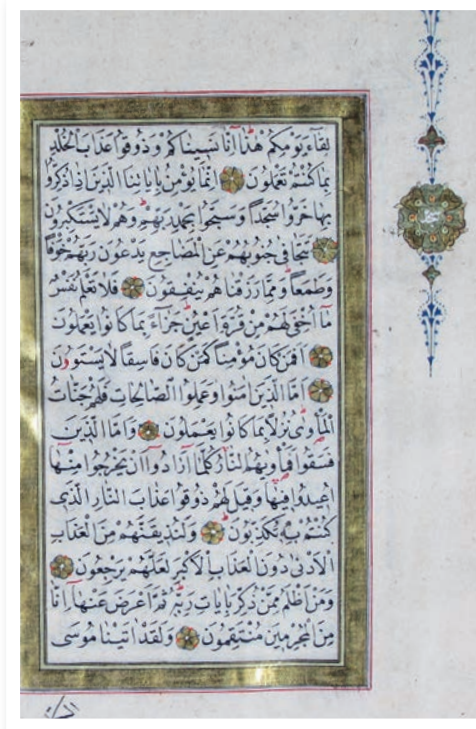 لِقَاءَ يَوْمِكُمْ هٰذَا اِنَّا نَسِينَاكُمْ وَذُوقُوا عَذَابَ الْخُلْدِ
بِمَا كُنْتُمْ تَعْمَلُونَ اِنَّمَا يُؤْمِنُ بِاٰيَاتِنَا الَّذِينَ اِذَا ذُكِّرُوا
بِهَا خَرُّوا سُجَّدًا وَسَبَّحُوا بِحَمْدِ رَبِّهِمْ وَهُمْ لَا يَسْتَكْبِرُونَ
تَتَجَافٰى جُنُوبُهُمْ عَنِ الْمَضَاجِعِ يَدْعُونَ رَبَّهُمْ خَوْفًا
وَطَمَعًا وَمِمَّا رَزَقْنَاهُمْ يُنْفِقُونَ فَلَا تَعْلَمُ نَفْسٌ
مَا اُخْفِيَ لَهُمْ مِنْ قُرَّةِ اَعْيُنٍ جَزَاءً بِمَا كَانُوا يَعْمَلُونَ
اَفَمَنْ كَانَ مُؤْمِنًا كَمَنْ كَانَ فَاسِقًا لَا يَسْتَوُونَ
اَمَّا الَّذِينَ اٰمَنُوا وَعَمِلُوا الصَّالِحَاتِ فَلَهُمْ جَنَّاتُ
الْمَأْوٰى نُزُلًا بِمَا كَانُوا يَعْمَلُونَ وَاَمَّا الَّذِينَ
فَسَقُوا فَمَأْوٰيهُمُ النَّارُ كُلَّمَا اَرَادُوا اَنْ يَخْرُجُوا مِنْهَا
اُعِيدُوا فِيهَا وَقِيلَ لَهُمْ ذُوقُوا عَذَابَ النَّارِ الَّذِي
كُنْتُمْ بِهِ تُكَذِّبُونَ وَلَنُذِيقَنَّهُمْ مِنَ الْعَذَابِ
الْاَدْنٰى دُونَ الْعَذَابِ الْاَكْبَرِ لَعَلَّهُمْ يَرْجِعُونَ
وَمَنْ اَظْلَمُ مِمَّنْ ذُكِّرَ بِاٰيَاتِ رَبِّهِ ثُمَّ اَعْرَضَ عَنْهَا اِنَّا
مِنَ الْمُجْرِمِينَ مُنْتَقِمُونَ وَلَقَدْ اٰتَيْنَا مُوسَى